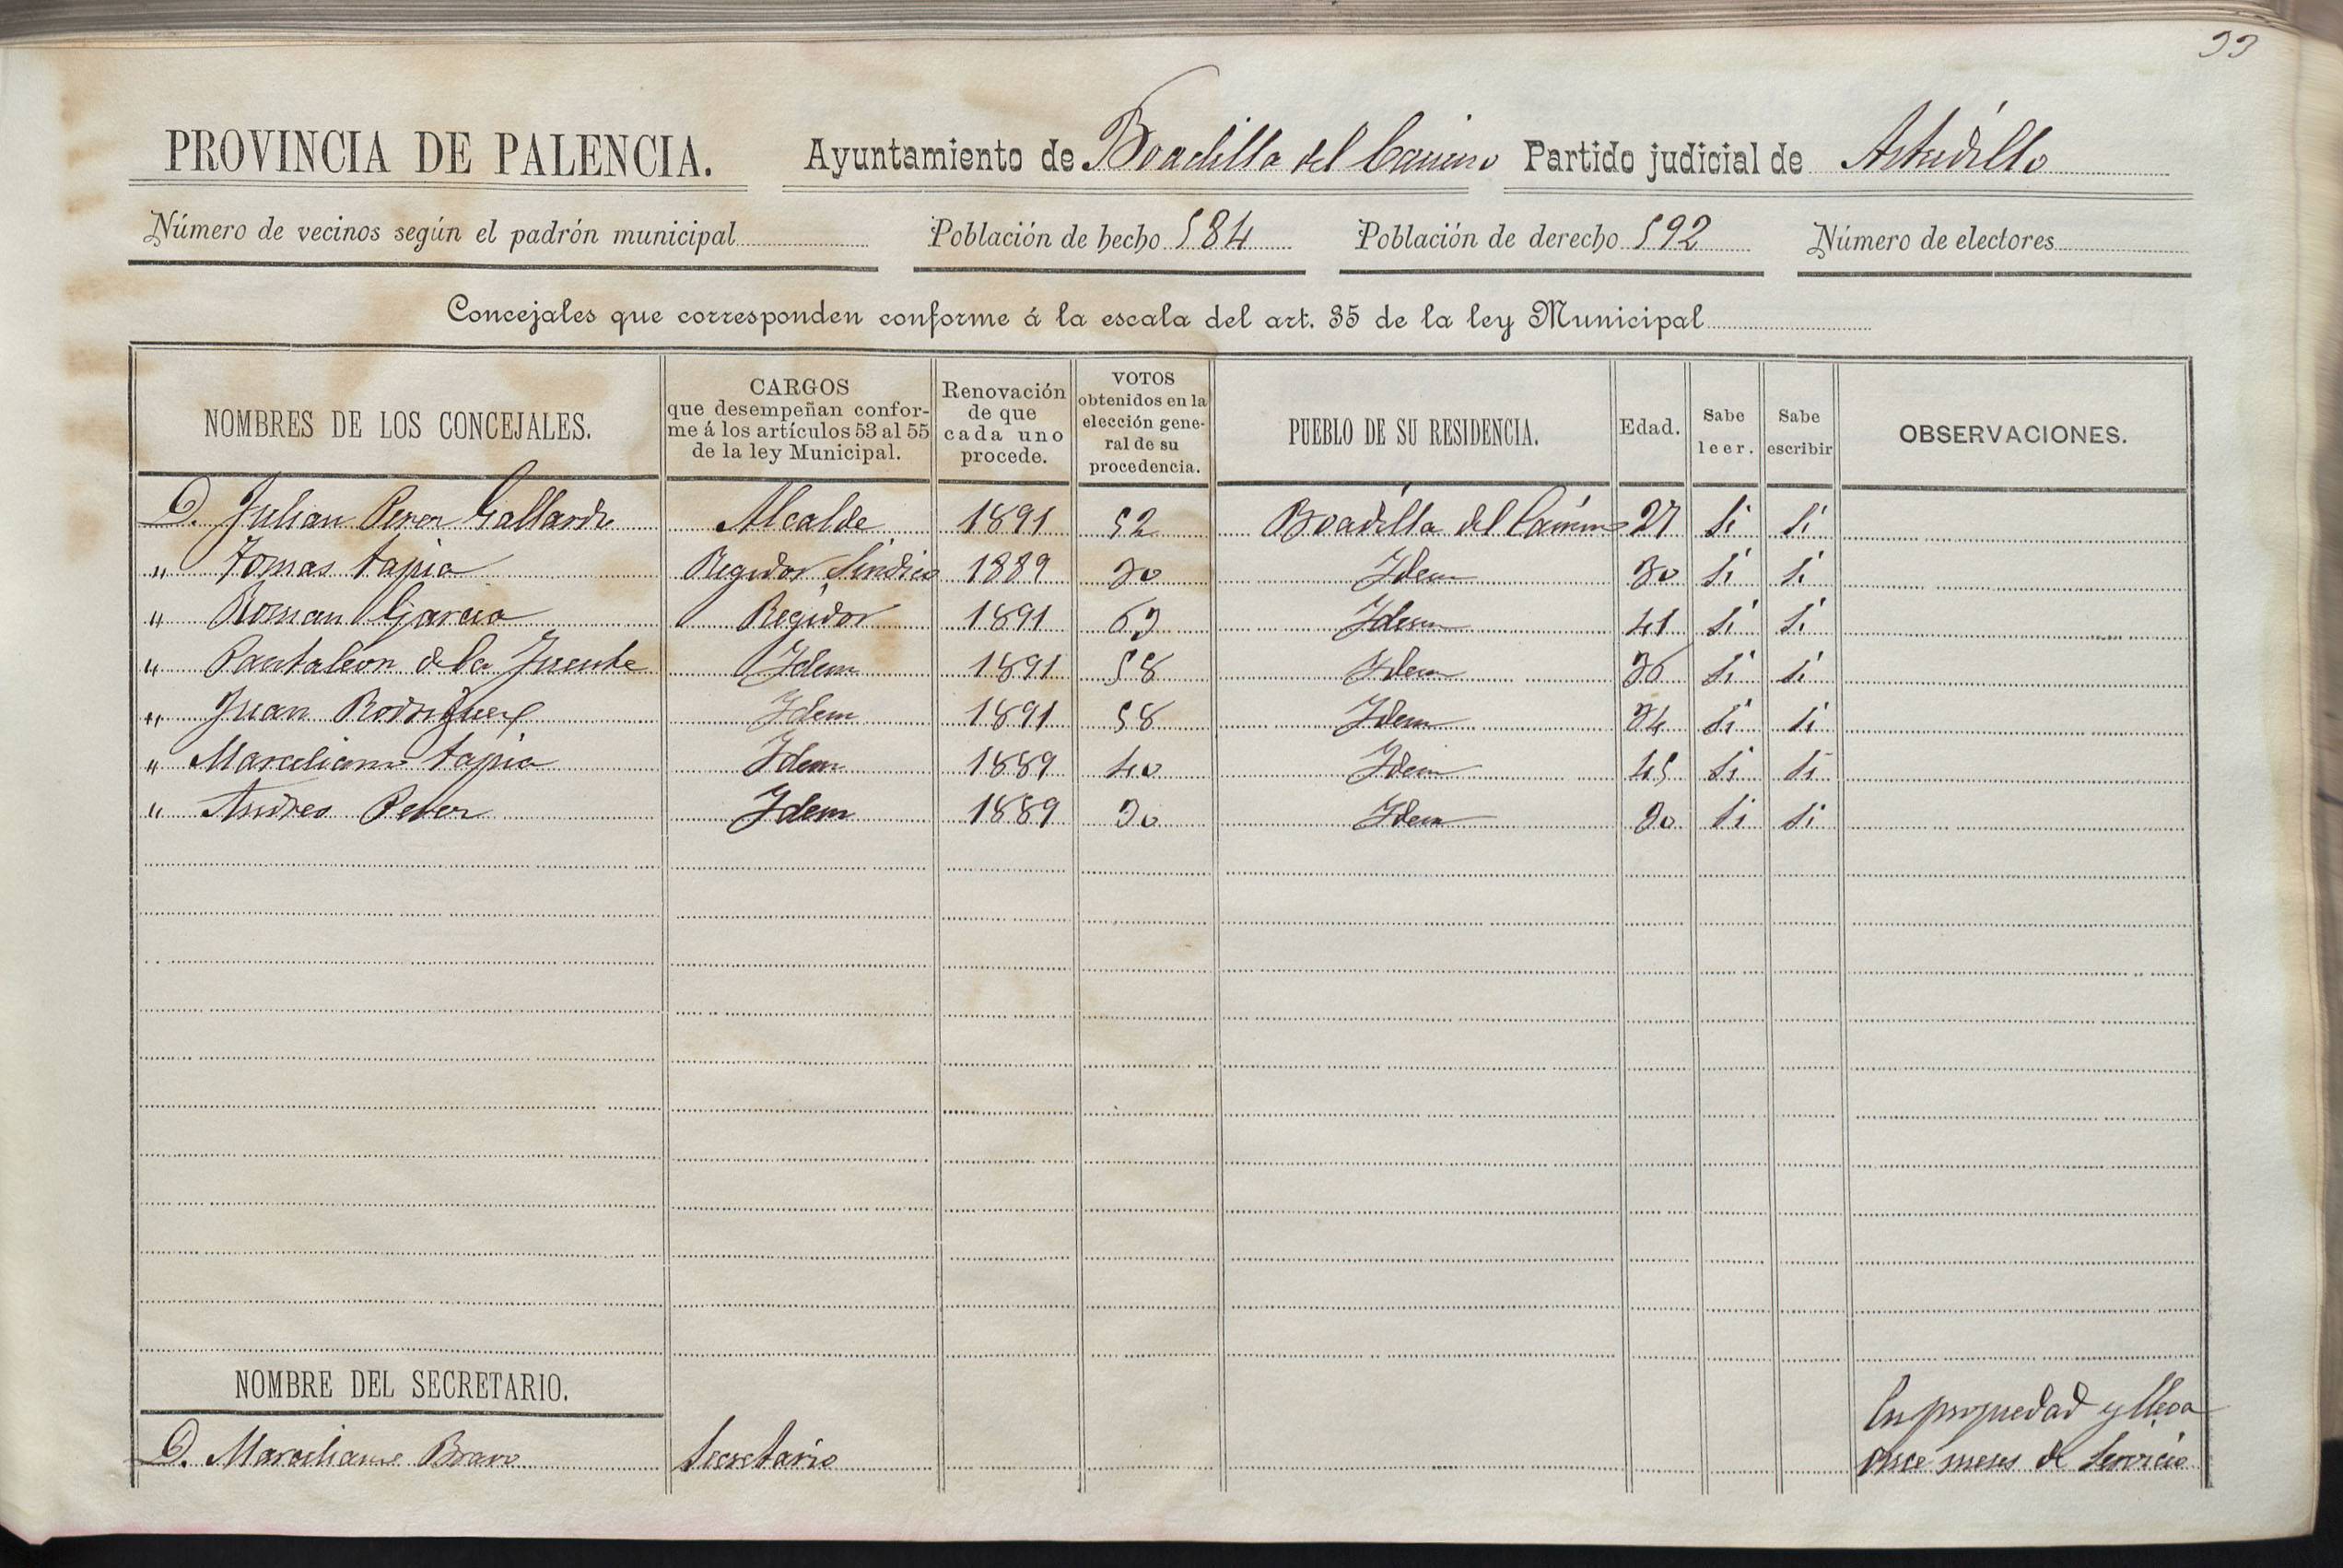 33
PROVINCIA DE PALENCIA. Ayuntamiento de Boadilla del Camino Partido judicial de Astudillo
Número de vecinos según el padrón municipal Población de hecho 584 Población de derecho 592 Número de electores
Concejales que corresponden conforme á la escala del art. 35 de la ley Municipal
NOMBRES DE LOS CONCEJALES.
CARGOS
que desempeñan confor-
me á los artículos 53 al 55
de la ley Municipal.
Renovación
de que
cada uno
procede.
VOTOS
obtenidos en la
elección gene-
ral de su
procedencia.
PUEBLO DE SU RESIDENCIA.
Edad.
Sabe
leer.
Sabe
escribir
OBSERVACIONES.
D. Julian Perez Gallardo Alcalde 1891 52 Boadilla del Camino 27 Si Si
" Tomas tapia Regidor Sindico 1889 30 Idem 30 Si Si
" Roman Garcia Regidor 1891 63 Idem 41 Si Si
" Pantaleon de la Fuente Idem 1891 58 Idem 36 Si Si
" Juan Rodriguez Idem 1891 58 Idem 34 Si Si
" Marceliano tapia Idem 1889 40 Idem 45 Si Si
" Andres Perez Idem 1889 30 Idem 30 Si Si
NOMBRE DEL SECRETARIO.
D. Marceliano Bravo Secretario
En propiedad y lleva
once meses de Servicio